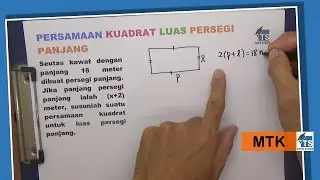 PERSAMAAN KUADRAT LUAS PERSEGI
PANJANG
Seutas kawat dengan
panjang 18 meter
dibuat persegi panjang.
Jika panjang persegi
panjang ialah (x+2)
meter, susunlah suatu
persamaan kuadrat
untuk luas persegi
panjang.
l
p
2(p+l)=18 m
TS
MTK
TS